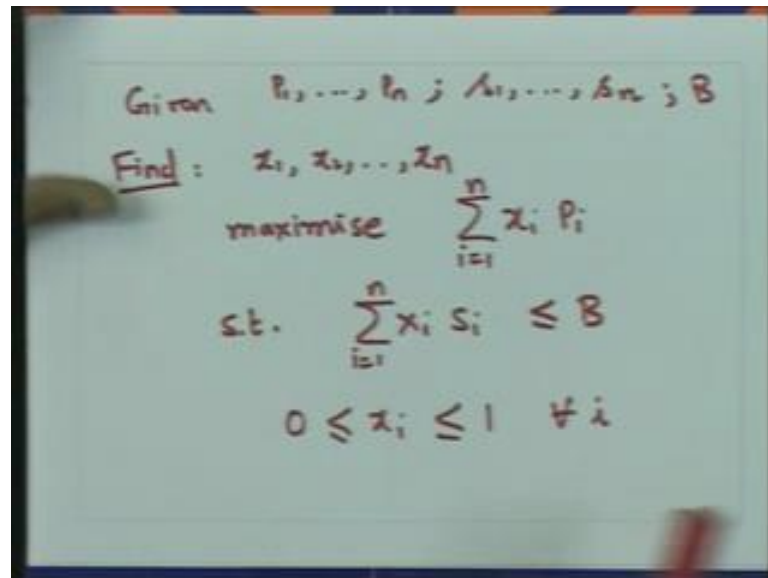 Given P₁, ..., Pₙ ; s₁, ..., sₙ ; B
Find : x₁, x₂, .., xₙ
maximise ∑ᵢ₌₁ⁿ xᵢ Pᵢ
s.t. ∑ᵢ₌₁ⁿ xᵢ sᵢ ≤ B
0 ≤ xᵢ ≤ 1 ∀ i